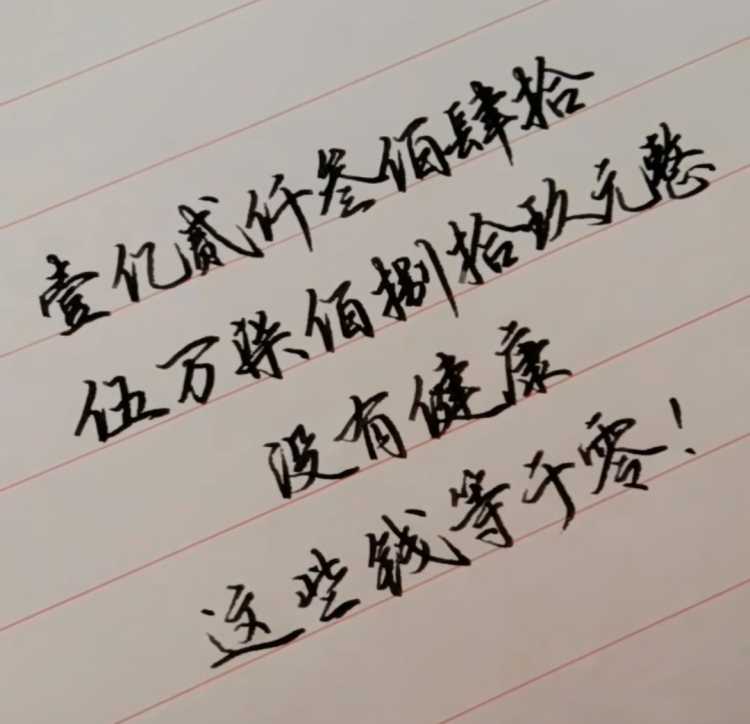 壹亿贰仟叁佰肆拾
伍万柒佰捌拾玖元整
没有健康
这些钱等于零！